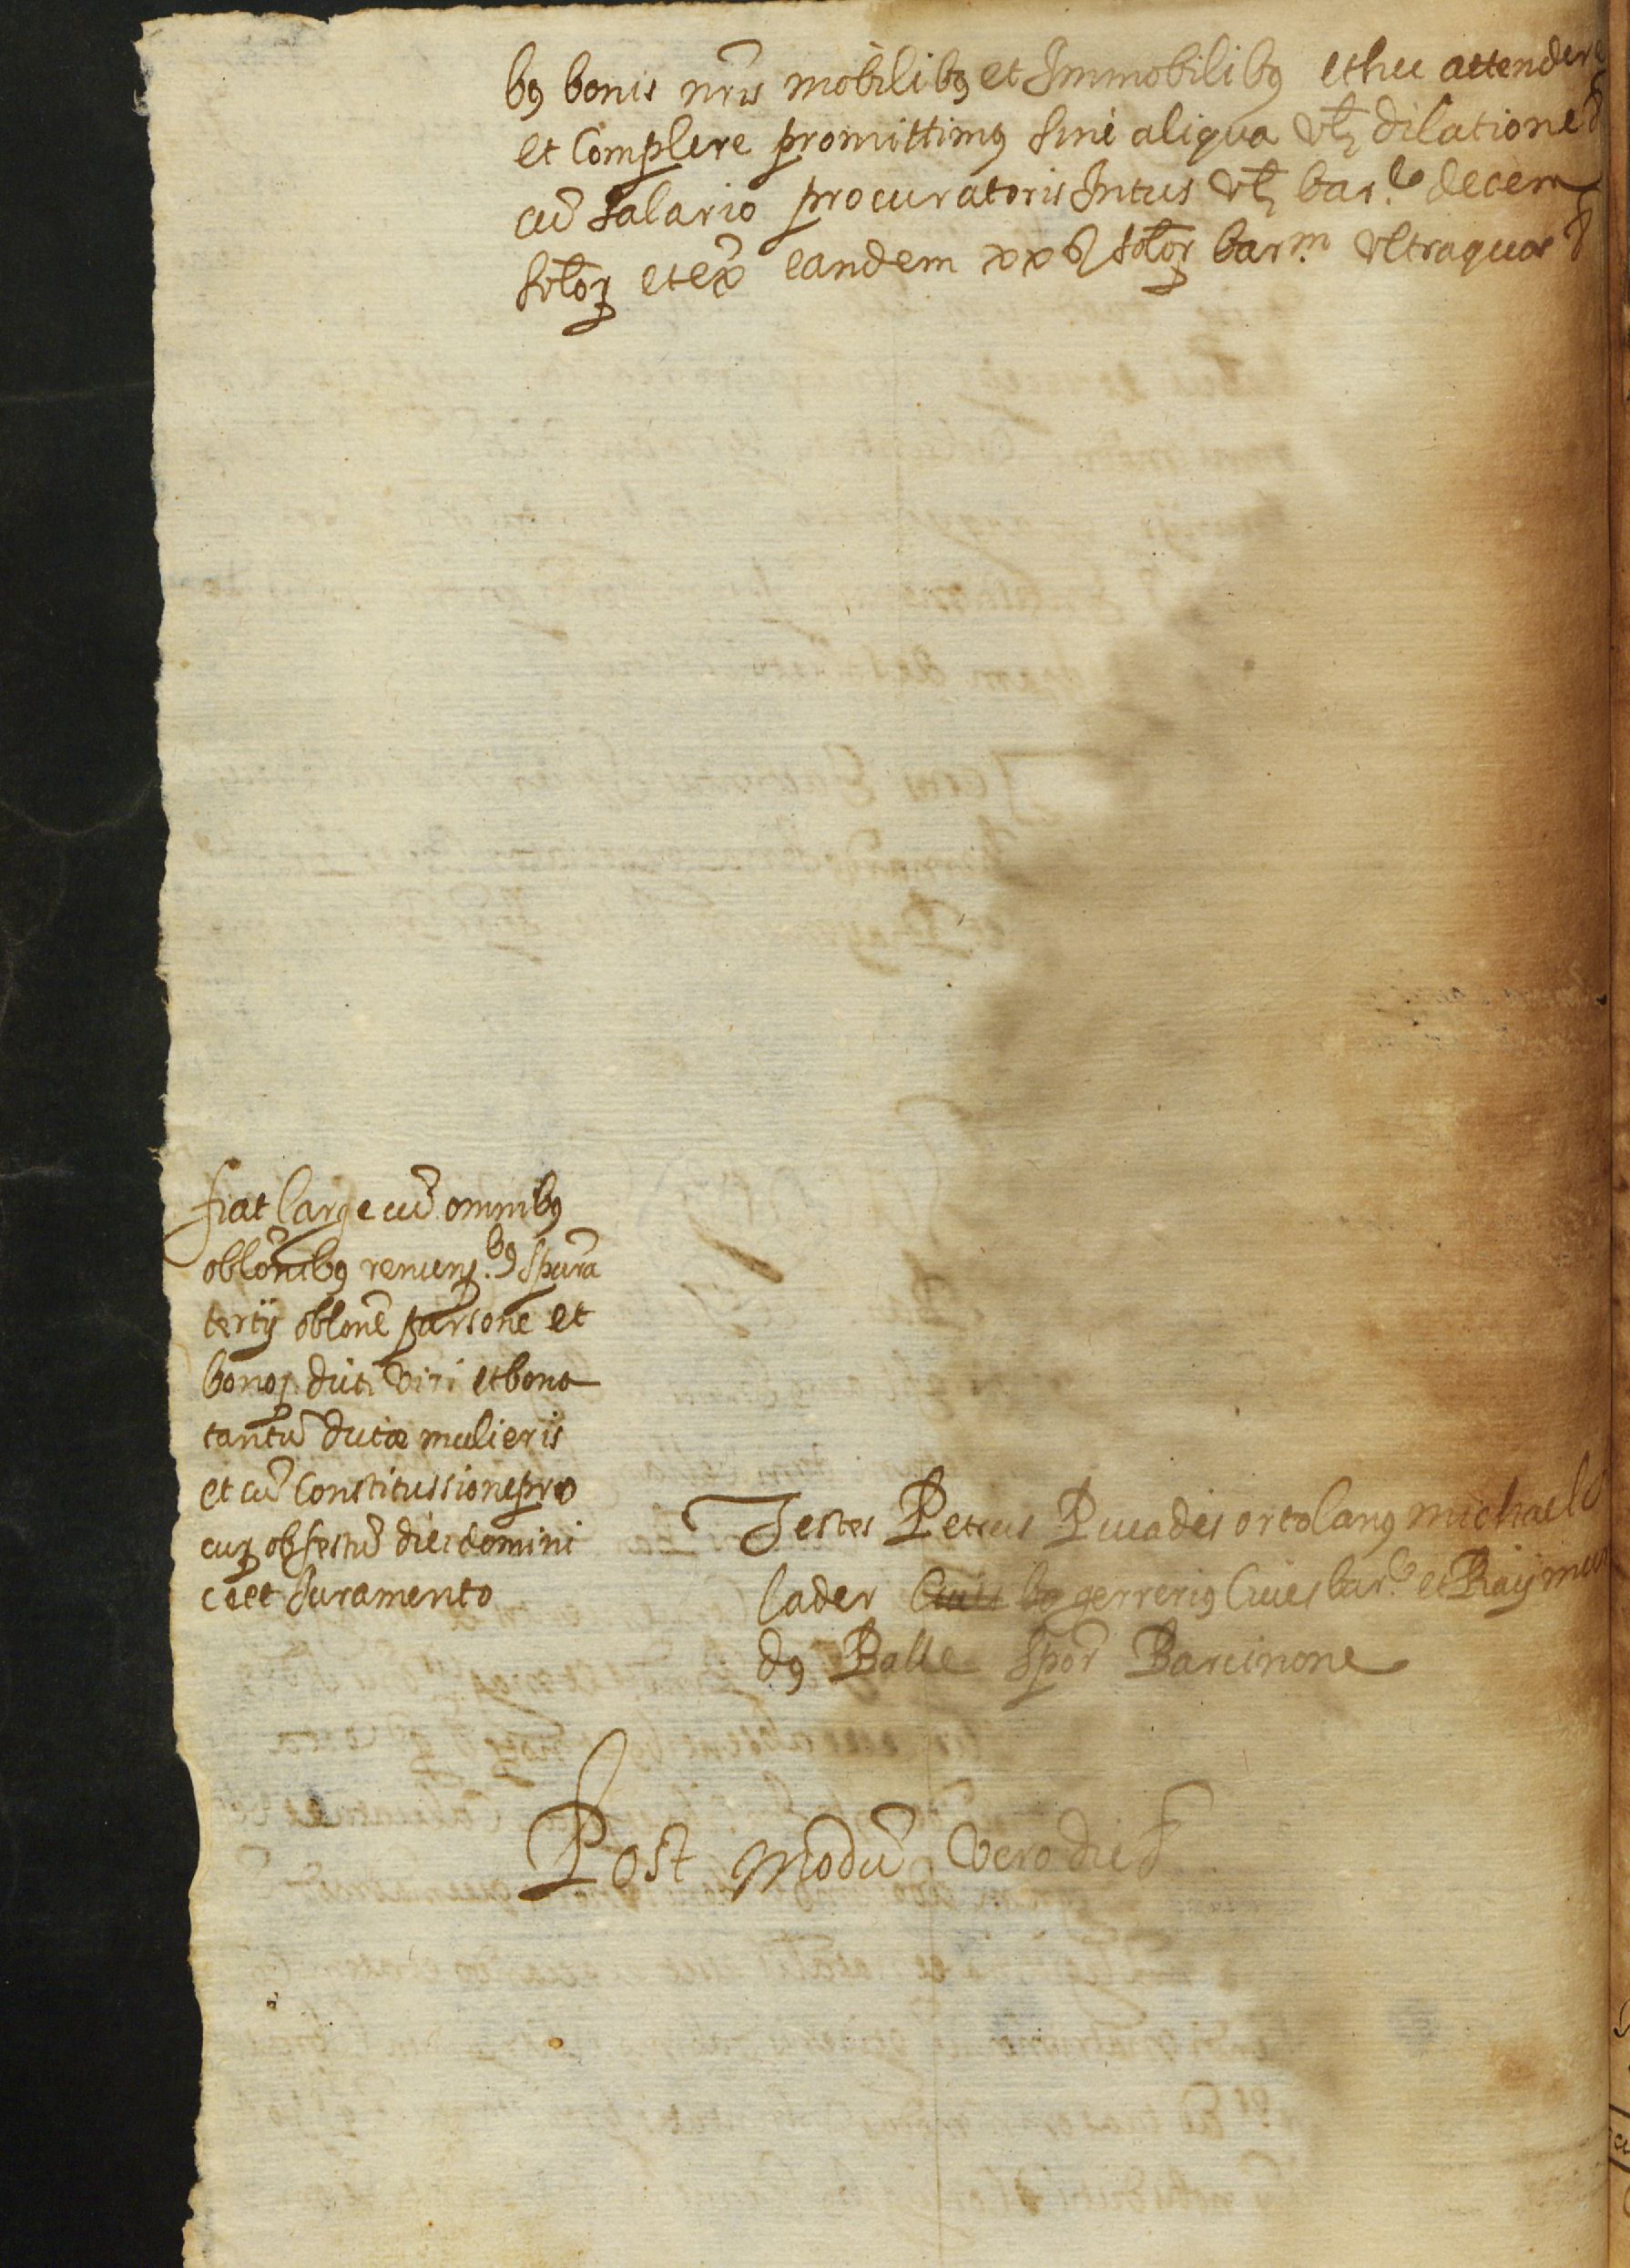 bꝰ bonis nr̃is mobilibꝰ et Immobilibꝰ et hec attendere
et Complere promittimꝰ sine aliqua vłȝ dilatione
cũ salario procuratoris Intus vłȝ bar.e decem
soloꝝ et ex̃ eandem xx solóꝝ bar.m vltra quos
fiat large cũ omnibꝰ
oblõnibꝰ renunȝ.bꝰ Spũra
tertij oblone persone et
bonoꝝ dicti viri et bona
tantũ dictæ mulieris
et cũ Constitussione pro
cuꝝ ob festũ diei domini
ce et Juramento
Testes Petrus Puiades ortolanꝰ michael
lader gerreriꝰ Ciues bar.e et Raymun
dꝰ Balle Barcinone
Post modũ vero die